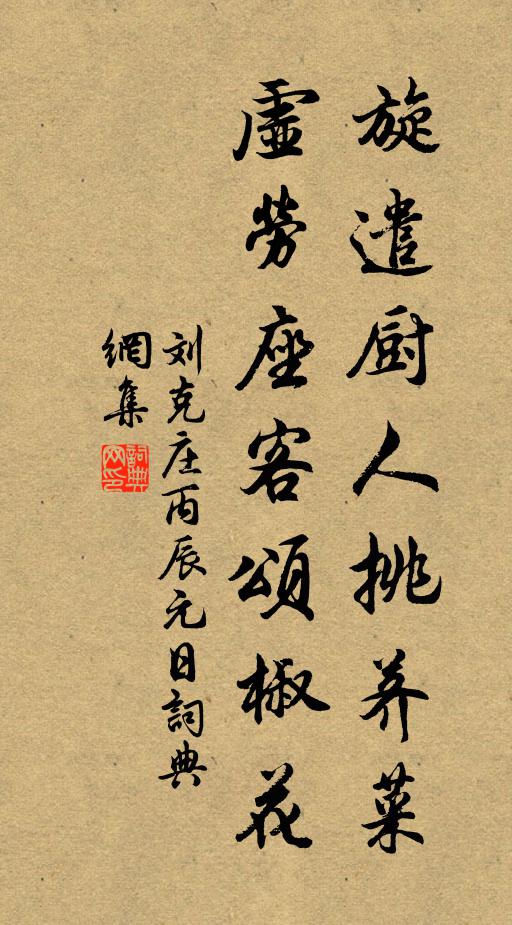 旋遣厨人挑荠菜
虚劳座客颂椒花
刘克庄丙辰元日詞典
網集
詞典網印